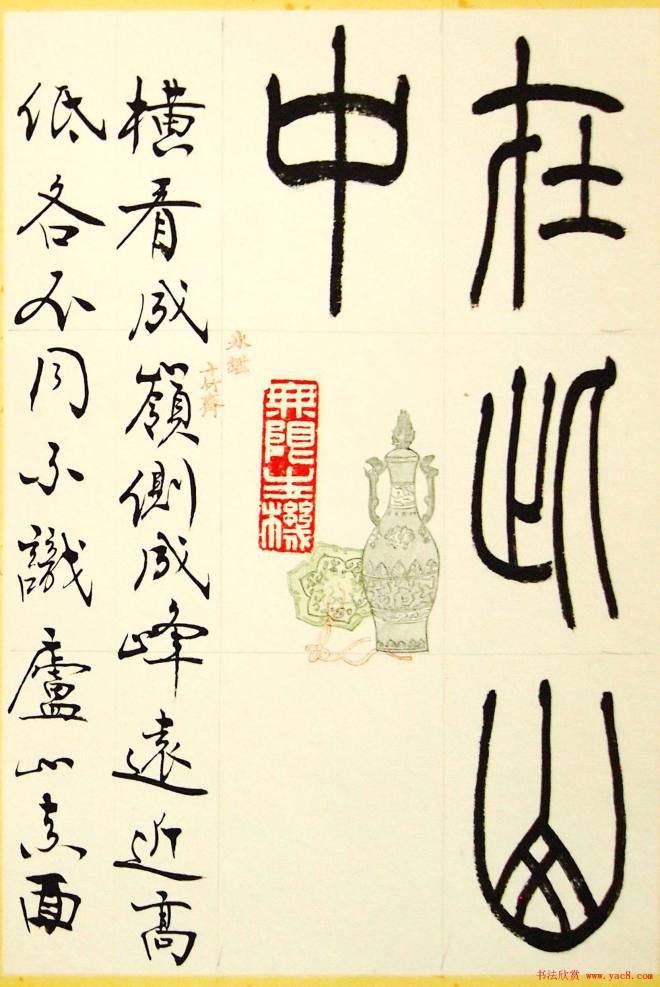 在此山
中
冰鑑
十竹齋
無限生機
橫看成嶺側成峰遠近高
低各不同不識廬山真面
书法欣赏 www.yac8.com